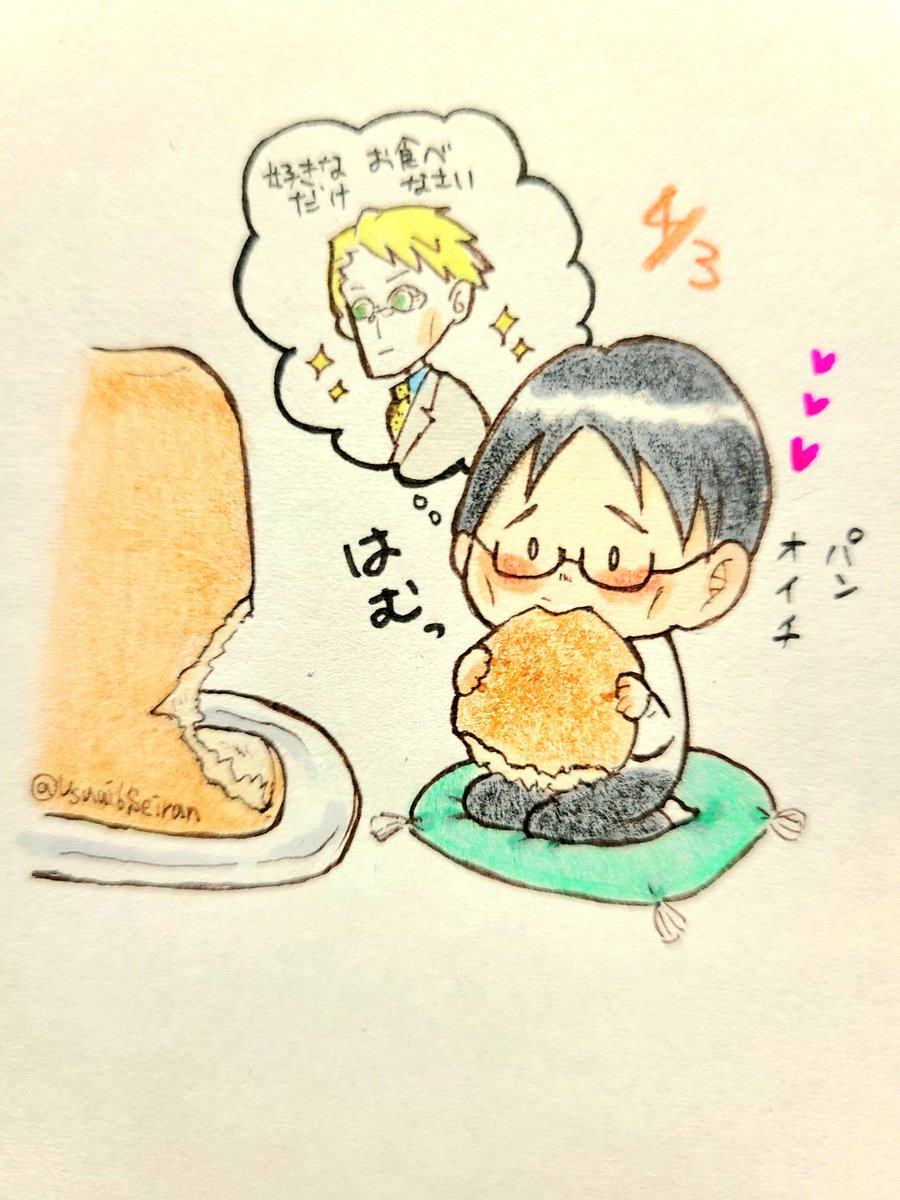 お食べ
なさい
好きな
だけ
4/3
はむっ
パン
オイチ
@UsuaibSeiran